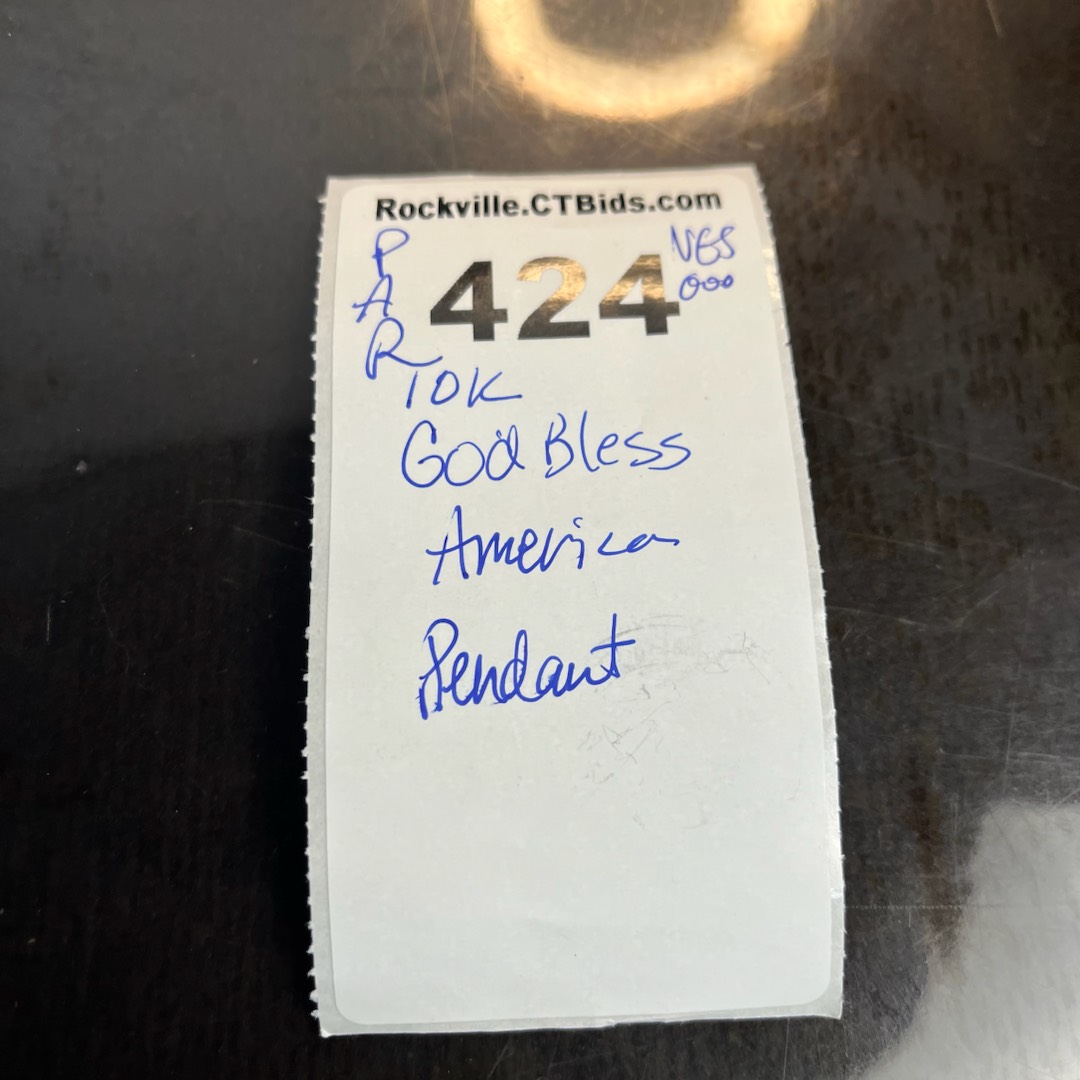 Rockville.CTBids.com
P
A
R
424
VGS
000
10K
God Bless
America
Pendant